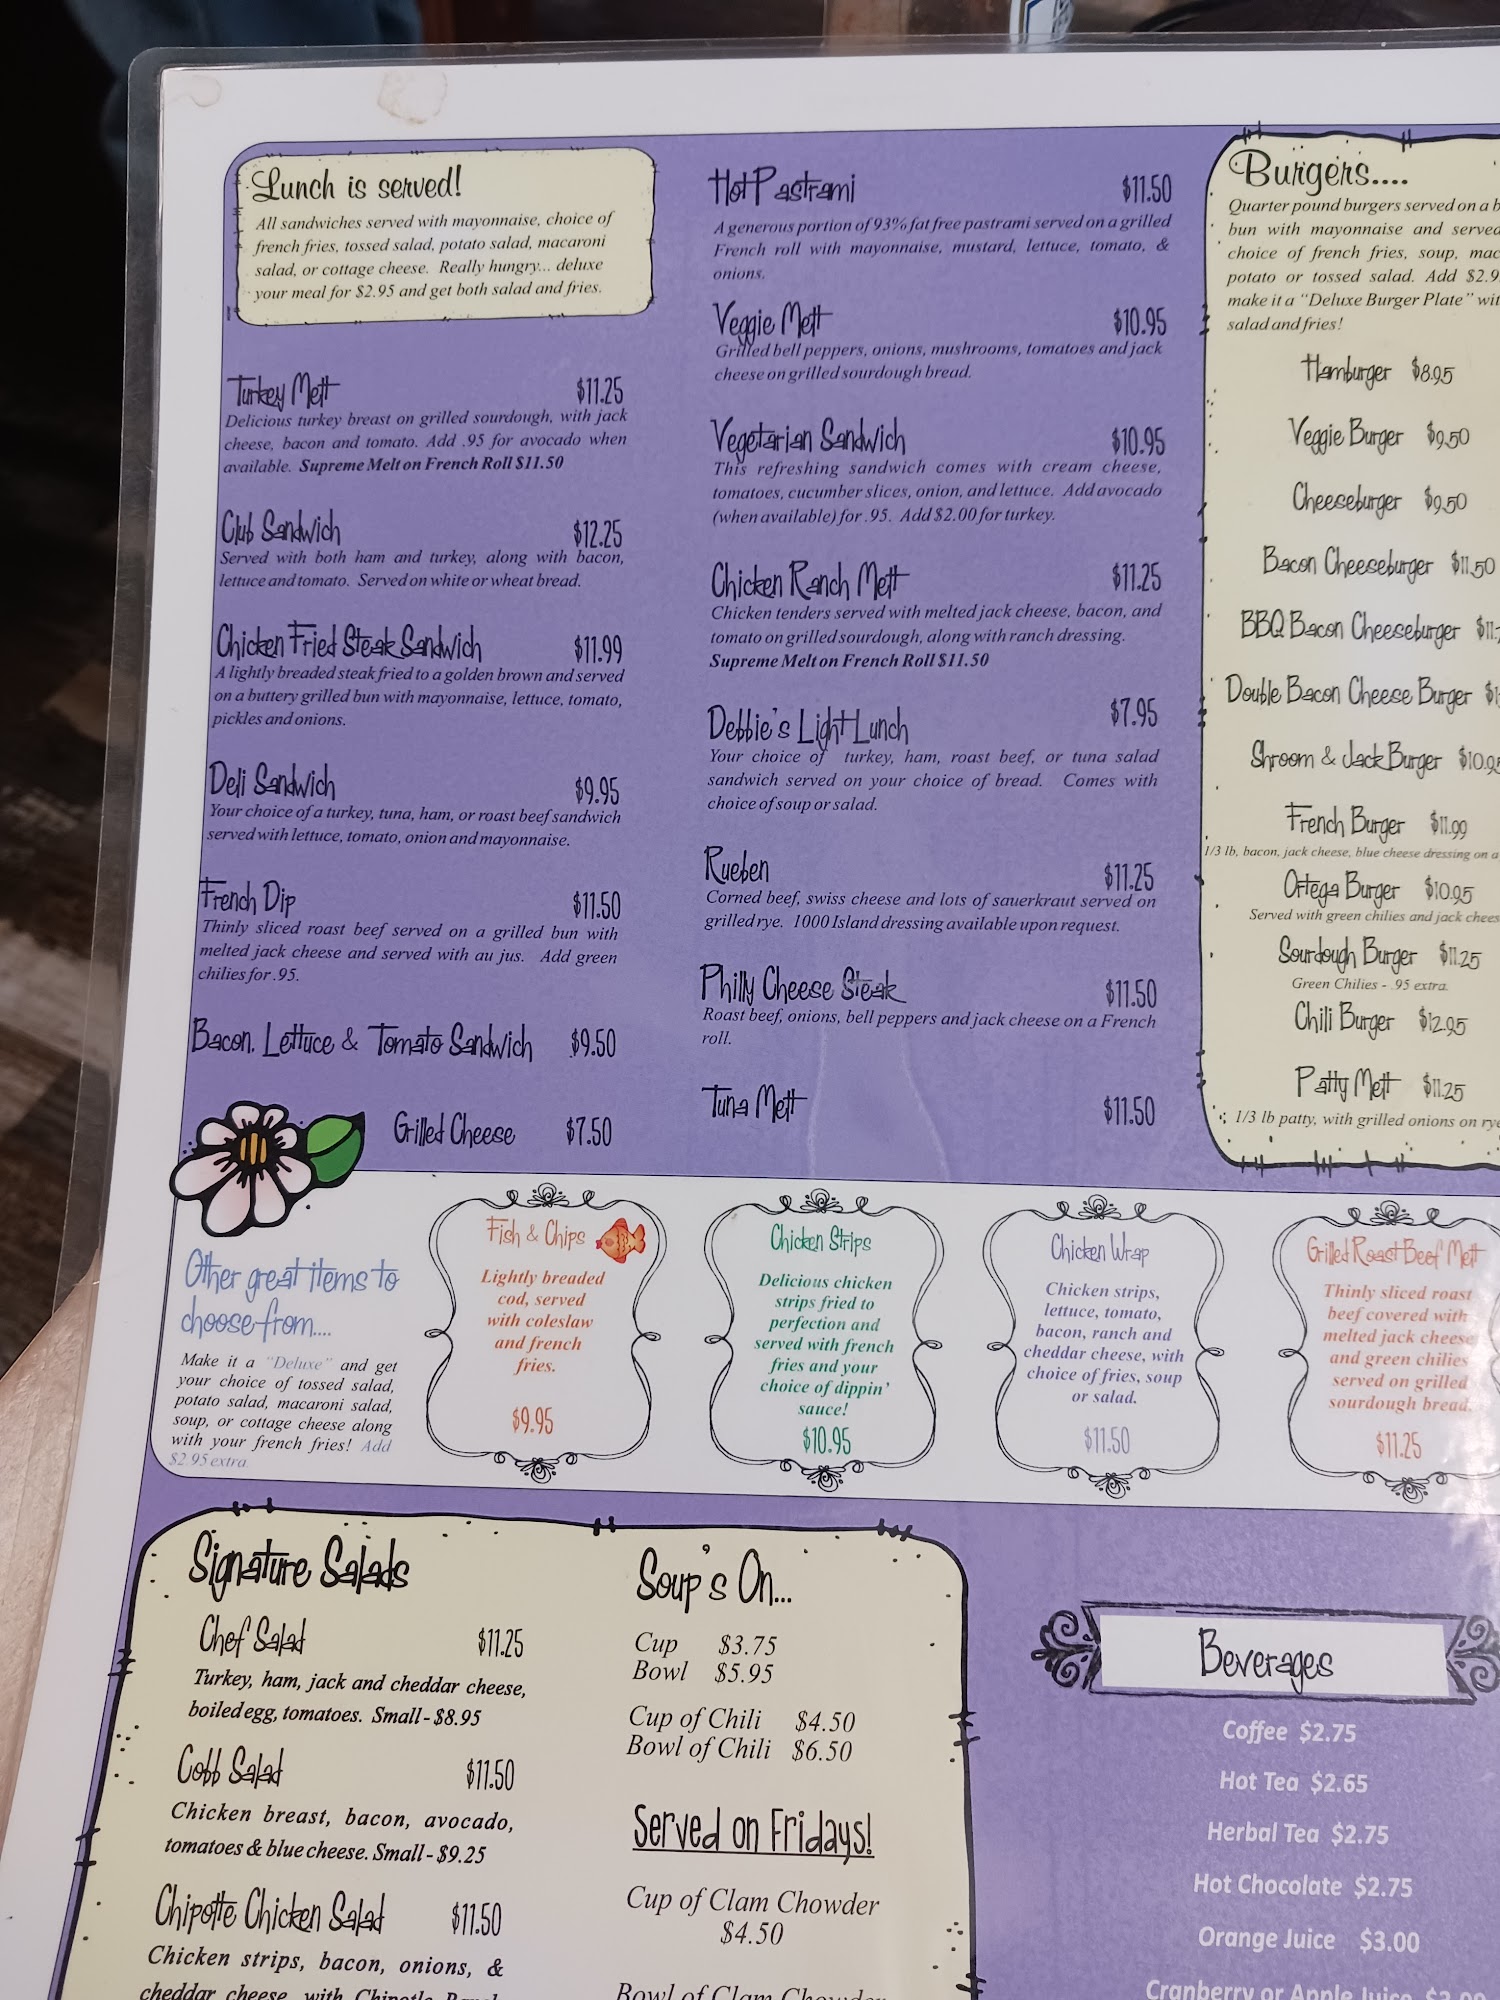 Lunch is served!
All sandwiches served with mayonnaise, choice of
french fries, tossed salad, potato salad, macaroni
salad, or cottage cheese. Really hungry... deluxe
your meal for $2.95 and get both salad and fries.
Turkey Melt $11.25
Delicious turkey breast on grilled sourdough, with jack
cheese, bacon and tomato. Add .95 for avocado when
available. Supreme Melt on French Roll $11.50
Club Sandwich $12.25
Served with both ham and turkey, along with bacon,
lettuce and tomato. Served on white or wheat bread.
Chicken Fried Steak Sandwich $11.99
A lightly breaded steak fried to a golden brown and served
on a buttery grilled bun with mayonnaise, lettuce, tomato,
pickles and onions.
Deli Sandwich $9.95
Your choice of a turkey, tuna, ham, or roast beef sandwich
served with lettuce, tomato, onion and mayonnaise.
French Dip $11.50
Thinly sliced roast beef served on a grilled bun with
melted jack cheese and served with au jus. Add green
chilies for .95.
Bacon, Lettuce & Tomato Sandwich $9.50
Grilled Cheese $7.50
Hot Pastrami $11.50
A generous portion of 93% fat free pastrami served on a grilled
French roll with mayonnaise, mustard, lettuce, tomato, &
onions.
Veggie Melt $10.95
Grilled bell peppers, onions, mushrooms, tomatoes and jack
cheese on grilled sourdough bread.
Vegetarian Sandwich $10.95
This refreshing sandwich comes with cream cheese,
tomatoes, cucumber slices, onion, and lettuce. Add avocado
(when available) for .95. Add $2.00 for turkey.
Chicken Ranch Melt $11.25
Chicken tenders served with melted jack cheese, bacon, and
tomato on grilled sourdough, along with ranch dressing.
Supreme Melt on French Roll $11.50
Debbie's Light Lunch $7.95
Your choice of turkey, ham, roast beef, or tuna salad
sandwich served on your choice of bread. Comes with
choice of soup or salad.
Rueben $11.25
Corned beef, swiss cheese and lots of sauerkraut served on
grilled rye. 1000 Island dressing available upon request.
Philly Cheese Steak $11.50
Roast beef, onions, bell peppers and jack cheese on a French
roll.
Tuna Melt $11.50
Burgers....
Quarter pound burgers served on a b
bun with mayonnaise and served
choice of french fries, soup, mac
potato or tossed salad. Add $2.9
make it a "Deluxe Burger Plate" wit
salad and fries!
Hamburger $8.95
Veggie Burger $9.50
Cheeseburger $9.50
Bacon Cheeseburger $11.50
BBQ Bacon Cheeseburger $11.
Double Bacon Cheese Burger $1
Shroom & Jack Burger $10.95
French Burger $11.99
1/3 lb, bacon, jack cheese, blue cheese dressing on a
Ortega Burger $10.95
Served with green chilies and jack chees
Sourdough Burger $11.25
Green Chilies - .95 extra.
Chili Burger $12.95
Patty Melt $11.25
1/3 lb patty, with grilled onions on rye
Other great items to
choose from....
Make it a "Deluxe" and get
your choice of tossed salad,
potato salad, macaroni salad,
soup, or cottage cheese along
with your french fries! Add
$2.95 extra.
Fish & Chips
Lightly breaded
cod, served
with coleslaw
and french
fries.
$9.95
Chicken Strips
Delicious chicken
strips fried to
perfection and
served with french
fries and your
choice of dippin'
sauce!
$10.95
Chicken Wrap
Chicken strips,
lettuce, tomato,
bacon, ranch and
cheddar cheese, with
choice of fries, soup
or salad.
$11.50
Grilled Roast Beef Melt
Thinly sliced roast
beef covered with
melted jack cheese
and green chilies
served on grilled
sourdough bread.
$11.25
Signature Salads
Chef Salad $11.25
Turkey, ham, jack and cheddar cheese,
boiled egg, tomatoes. Small - $8.95
Cobb Salad $11.50
Chicken breast, bacon, avocado,
tomatoes & blue cheese. Small - $9.25
Chipotle Chicken Salad $11.50
Chicken strips, bacon, onions, &
cheddar cheese, with Chipotle Ranch
Soup's On...
Cup $3.75
Bowl $5.95
Cup of Chili $4.50
Bowl of Chili $6.50
Served on Fridays!
Cup of Clam Chowder
$4.50
Bowl of Clam Chowder
Beverages
Coffee $2.75
Hot Tea $2.65
Herbal Tea $2.75
Hot Chocolate $2.75
Orange Juice $3.00
Cranberry or Apple Juice